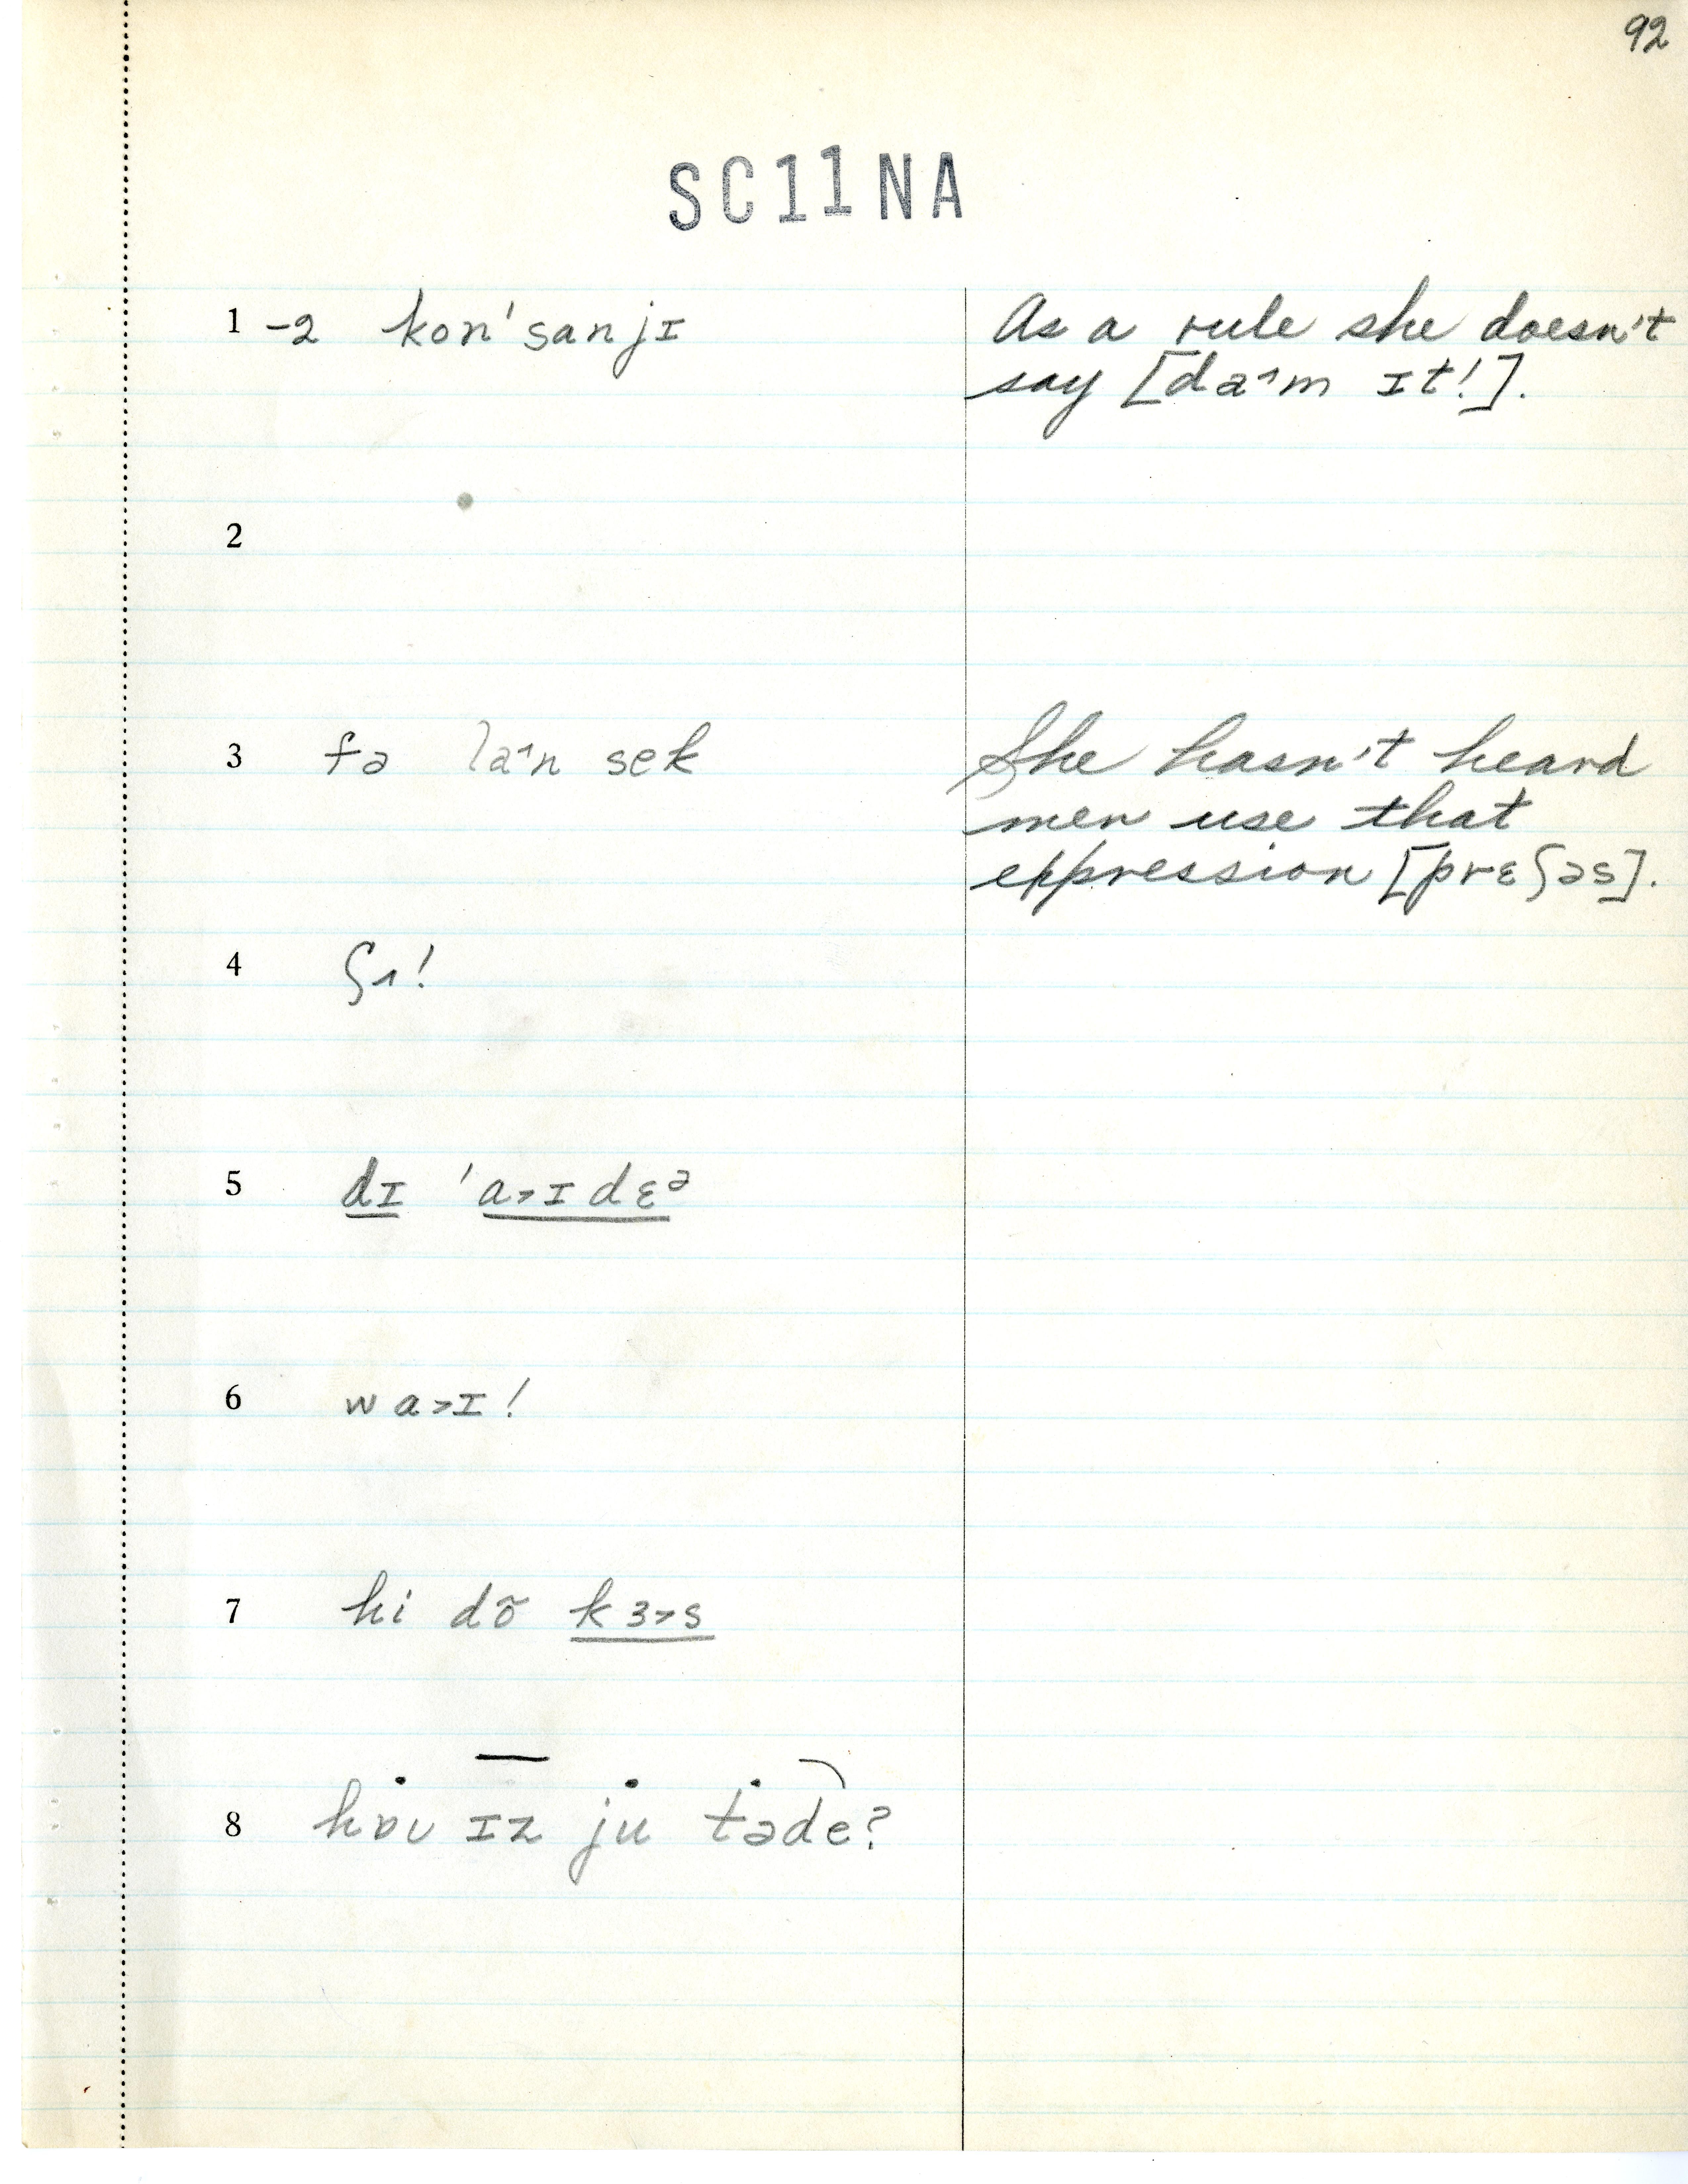 92
SC11NA
1 -2 konˈsanjɪ
As a rule she doesn't
say [da˄m ɪt!].
2
3 fə la˄n sek
She hasn't heard
men use that
eppression [prɛʃəs].
4 ʃʌ!
5 dɪ ˈa˃ɪdɛᵊ
6 wa˃ɪ!
7 hi dõ kɜ˃s
8 hɒʊ ɪz ju təde?